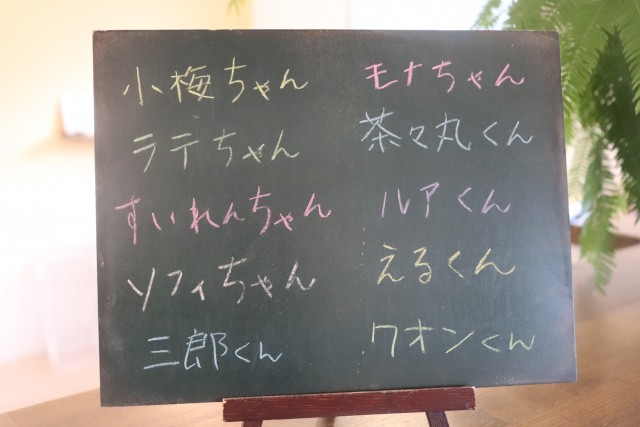 小梅ちゃん
ラテちゃん
すいれんちゃん
ソフィちゃん
三郎くん
モナちゃん
茶々丸くん
ルアくん
えるくん
クオンくん